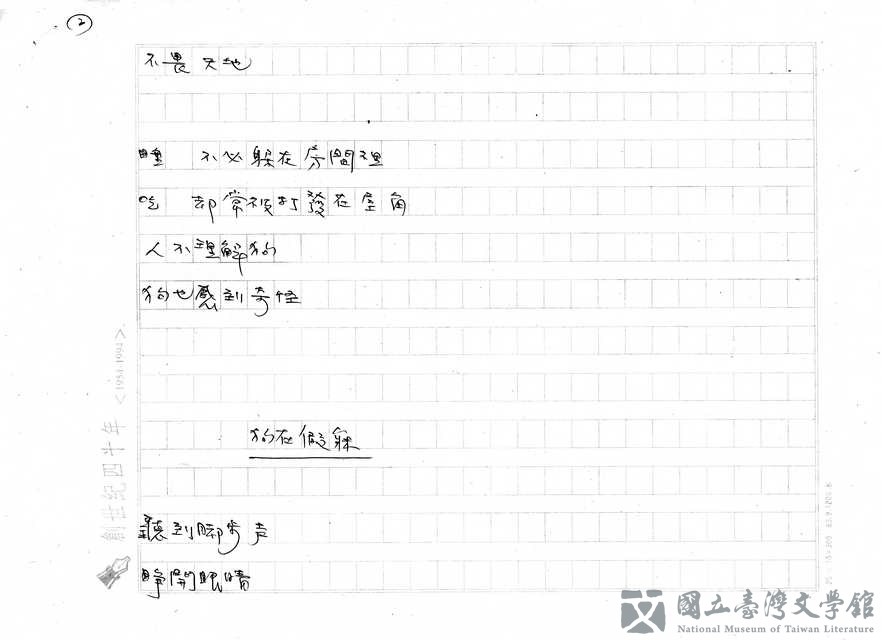 2
不畏天地
睡　不必躲在房間裡
吃　却常被打發在屋角
人不理解狗
狗也感到奇怪
狗在假寐
聽到脚步声
睜開眼睛
創世紀四十年 <1954-1994>
國立臺灣文學館
National Museum of Taiwan Literature